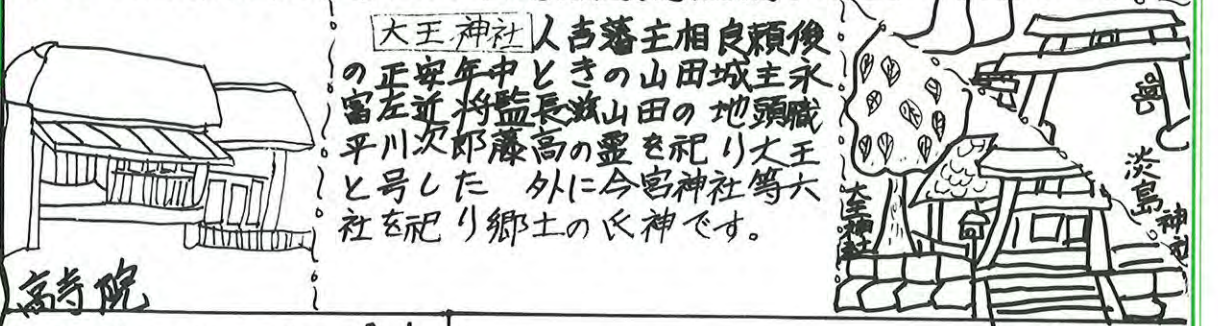 大王神社 人吉藩主相良頼俊
の正安年中ときの山田城主永
富左近将監長滋山田の地頭職
平川次郎藤高の霊を祀り大王
と号した 外に今宮神社等六
社を祀り郷土の氏神です。
高寺院
大王神社
淡島神社